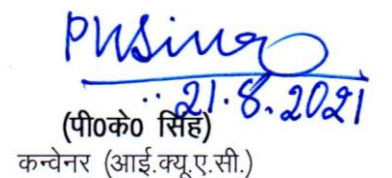 PKSingh
21.8.2021
(पी0के0 सिंह)
कन्वेनर (आई.क्यू.ए.सी.)